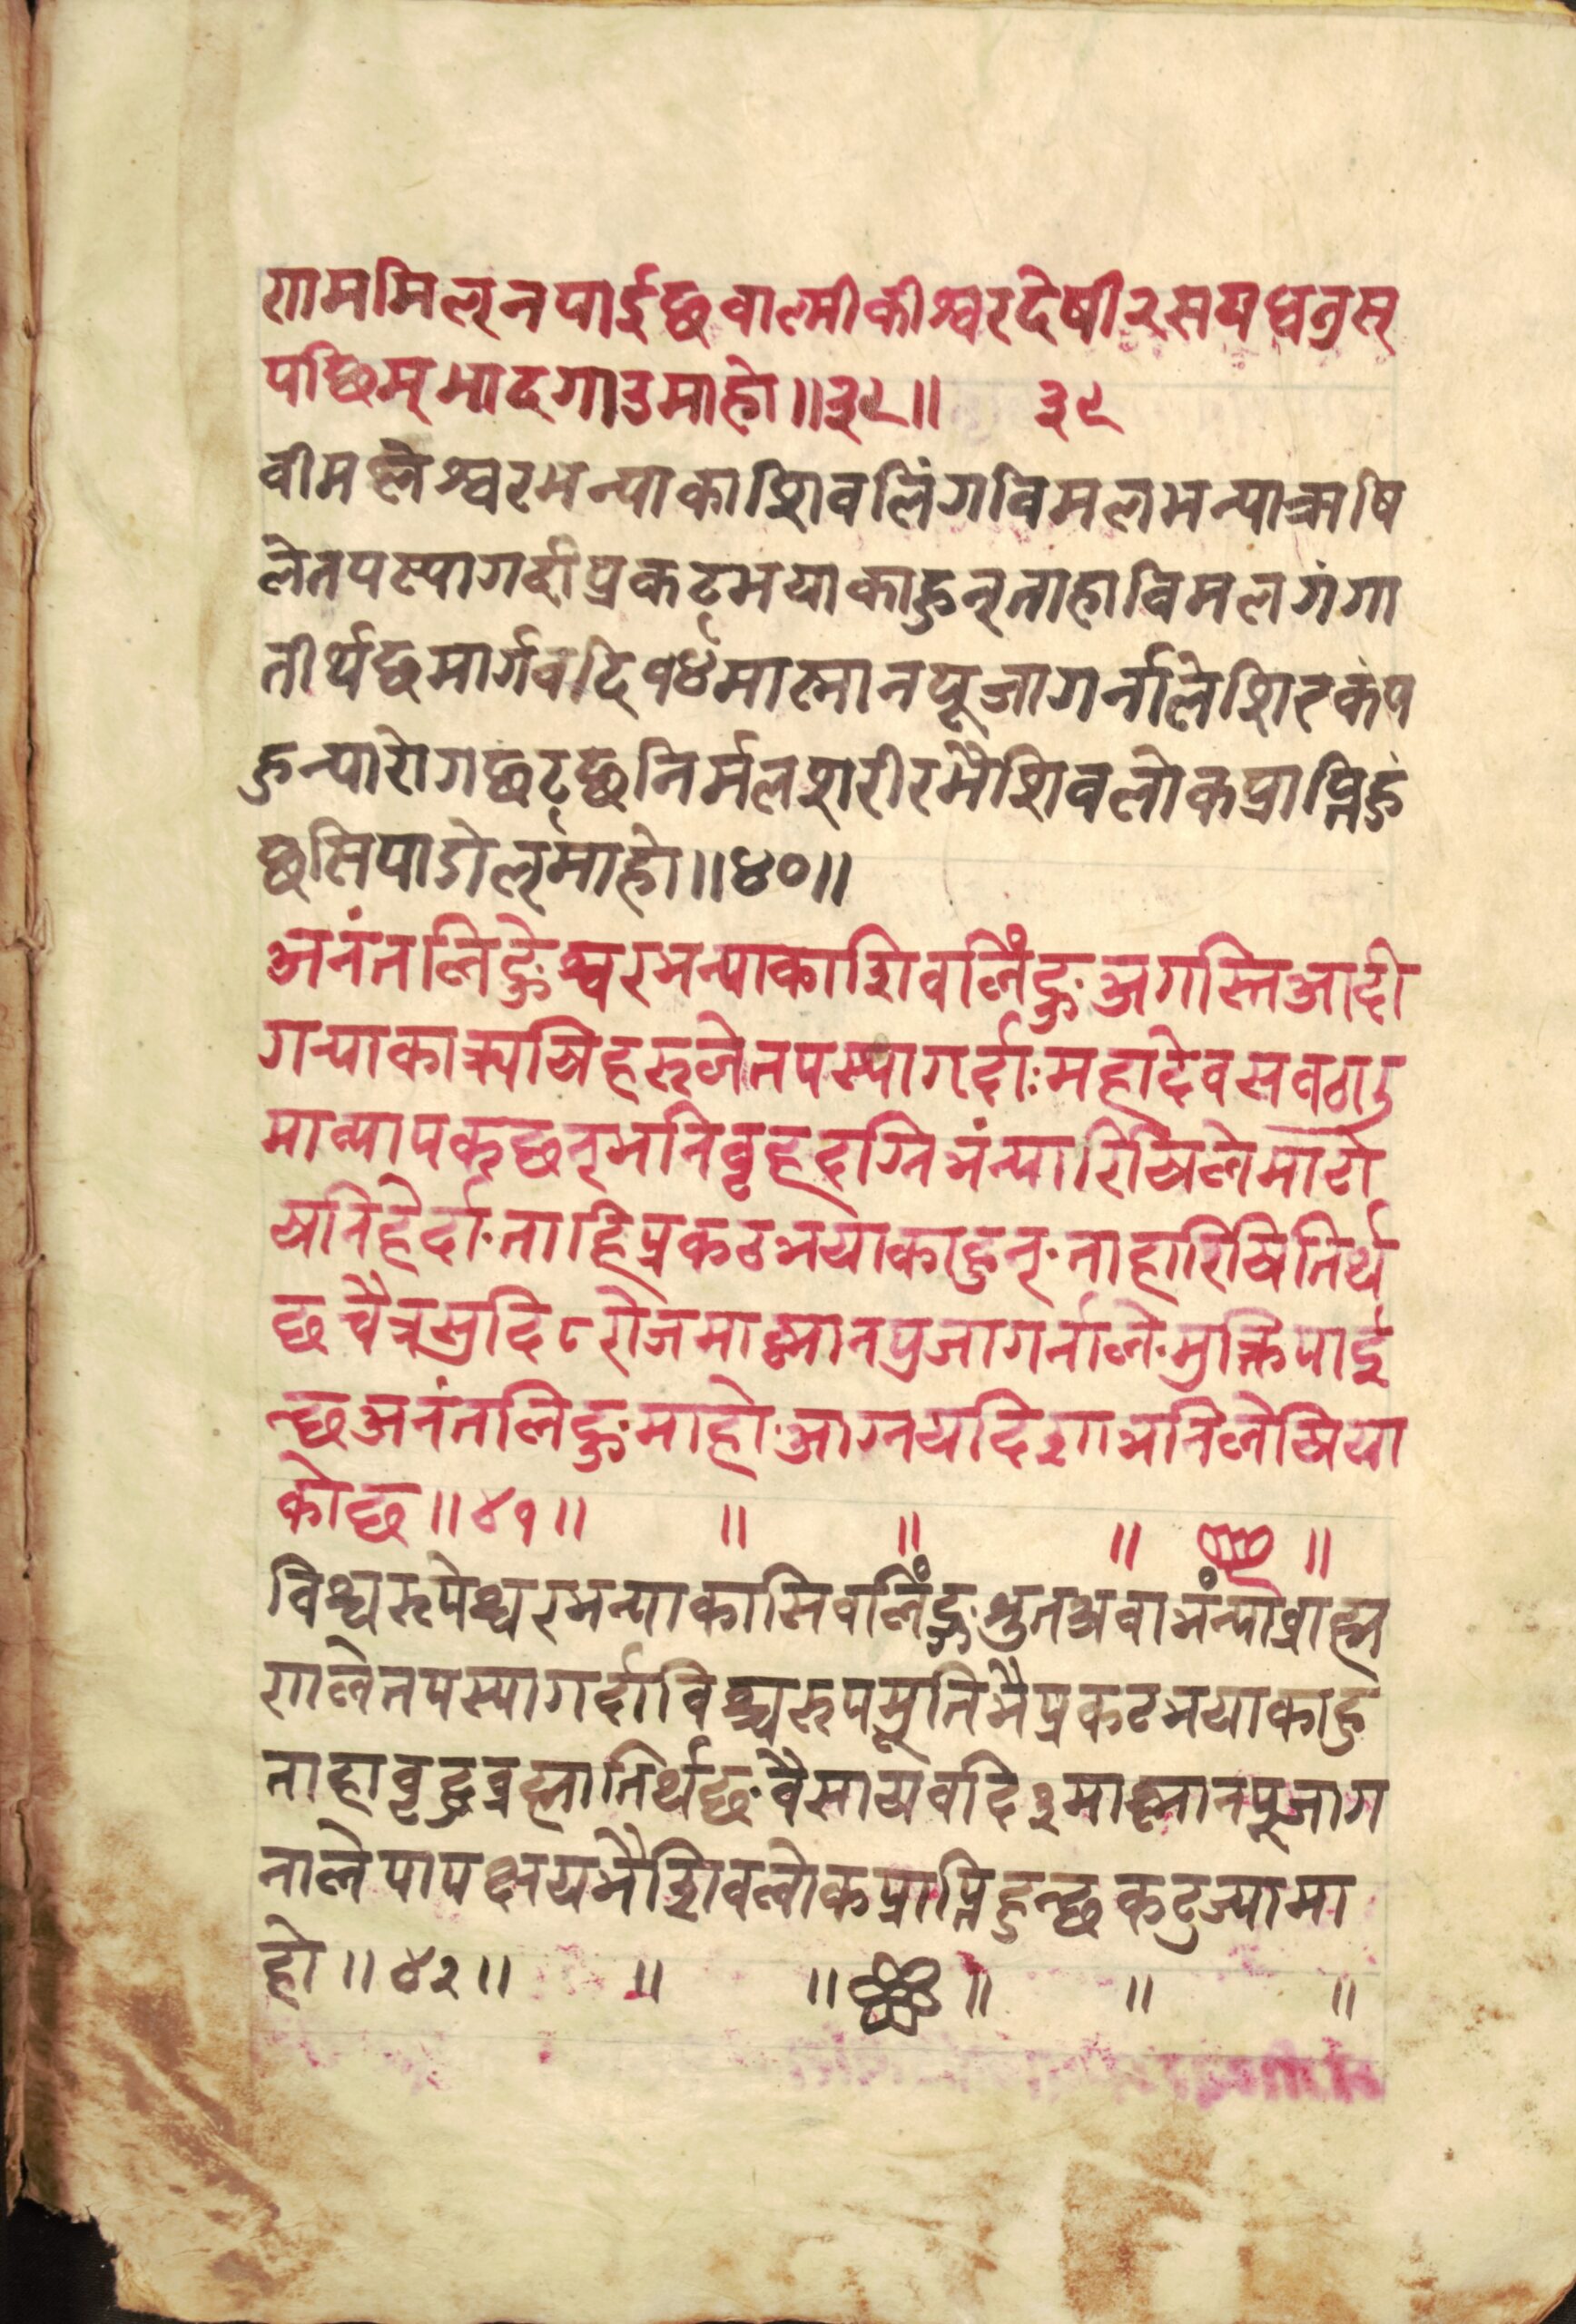 गाममिल्नपाईछवाल्मीकीश्वरदेषी२सयधनुस्
पछिम्भादगाउमाहो॥३९॥ ३९
वीमलेश्वरभन्याकाशिवलिंगविमलभन्याऋषि
लेतपस्यागर्दाप्रकटभयाकाहुन्ताहाविमलगंगा
तीर्थछमार्गवदि१४मास्नानपूजागर्नालेशिरकंप
हुन्यारोगछुट्छनिर्मलशरीरभैशिवलोकप्राप्तिहुं
छसिपाडोल्मार्हो॥४०॥
अनंतलिङ्गेश्वरभन्याकाशिवलिंङ्गअगस्तिआदी
गन्याकाऋषयिहरुलेतपस्यागर्दामहादेवसवठाउ
माव्यापकछन्भनिवृहदग्निभंन्यारिषिलेमाटो
षनिहेर्दाताहिप्रकटभयाकाहुन्ताहारिषितिर्थ
छचैत्रसुदि८रोजमास्नानपुजागर्नालेमुक्तिपाई
न्छअनंतलिङ्गमाहोआग्नयदिशाभनिलेषिया
कोछ॥४१॥ ॥ ॥ ॥ ॥
विश्वरूपेश्वरभन्याकासिवलिंङ्गश्रुतश्रवाभंन्याव्राह्म
णलेतपस्यागर्दाविश्वरुपमूर्तिभैप्रकटभयाकाहु
ताहावृद्धव्रह्मातिर्थछवैसाषवदि३मास्नानपूजाग
नालेपापक्षयभैशिवलोकप्राप्तिहुन्छकटुज्यामा
हो॥४२॥ ॥ ॥ ॥ ॥ ॥